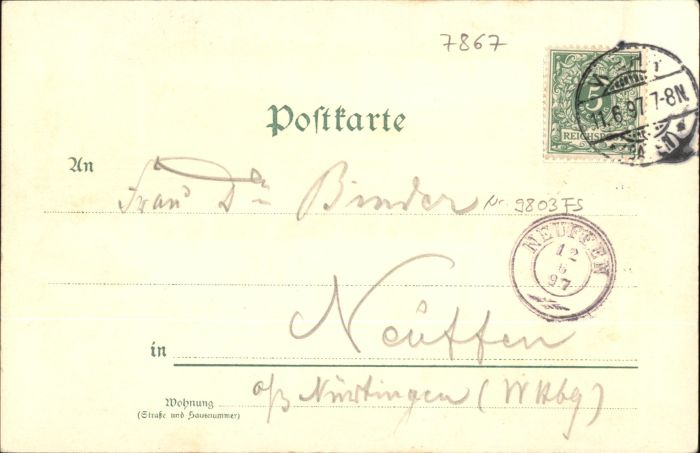 7867
5
REICHSP
11.6.97 7-8N
Postkarte
An
Frau Dr Binder
Nr. 9803 FS
NEUFFEN
12
6
97
in Neuffen
Wohnung
(Straße und Hausnummer)
Nürtingen (Wttbg)